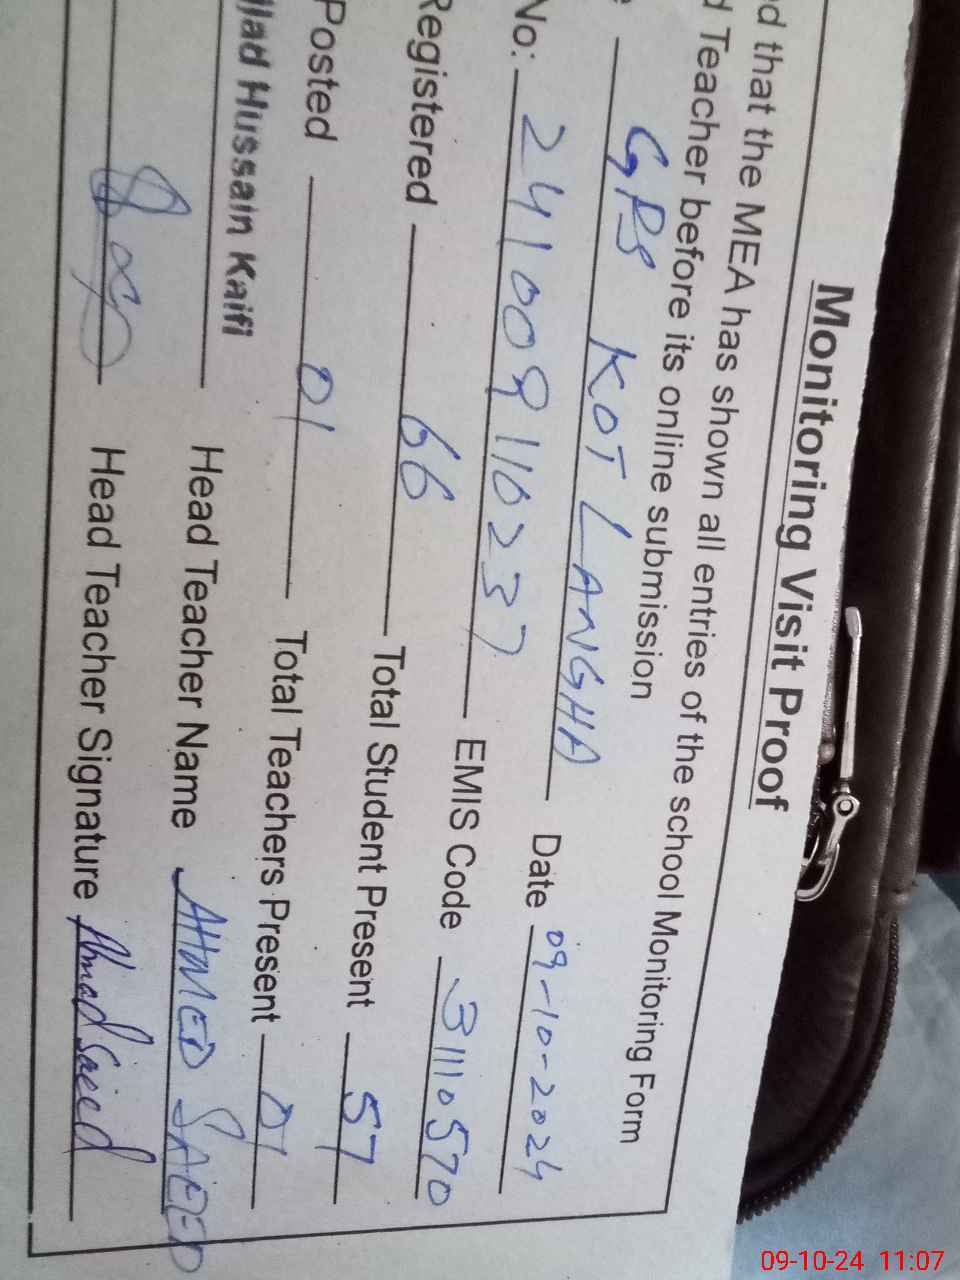 Monitoring Visit Proof
ed that the MEA has shown all entries of the school Monitoring Form
d Teacher before its online submission
GPS KOT LANGHA Date 09-10-2024
No: 241009110237 EMIS Code 31110570
Registered 66 Total Student Present 57
Posted 01 Total Teachers Present 01
jjad Hussain Kaifi Head Teacher Name AHMED SAEED
Head Teacher Signature Ahmad Saeed
09-10-24 11:07